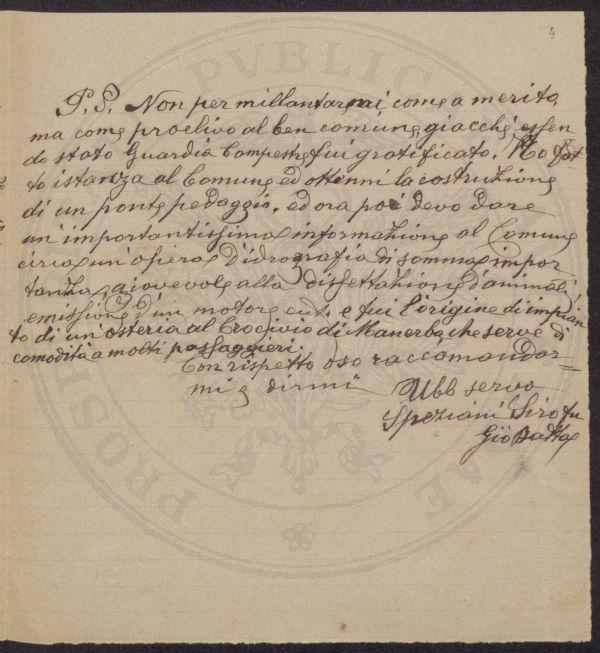 4
P.S. Non per millantarmi come a merito,
ma come proclivo al ben comune, giacchè essen
do stato Guardia Campestre fui gratificato. Ho fat
to istanza al Comune ed ottenni la costruzione
di un ponte pedaggio, ed ora poi devo dare
un'importantissima informazione al Comune
circa un'opera d'idrografia di somma impor
tanza, giovevole alla dissettazione d'animali,
emissione d'un motore ecc. e fui l'origine di impian
to di un'osteria al Crocivio di Manerba, che serve di
comodità a molti passaggieri.
Con rispetto oso raccomandar=
mi e dirmi
Ubb servo
Speziani Siro fu
Gio Batta
PVBLICAE
PROSPERITATI